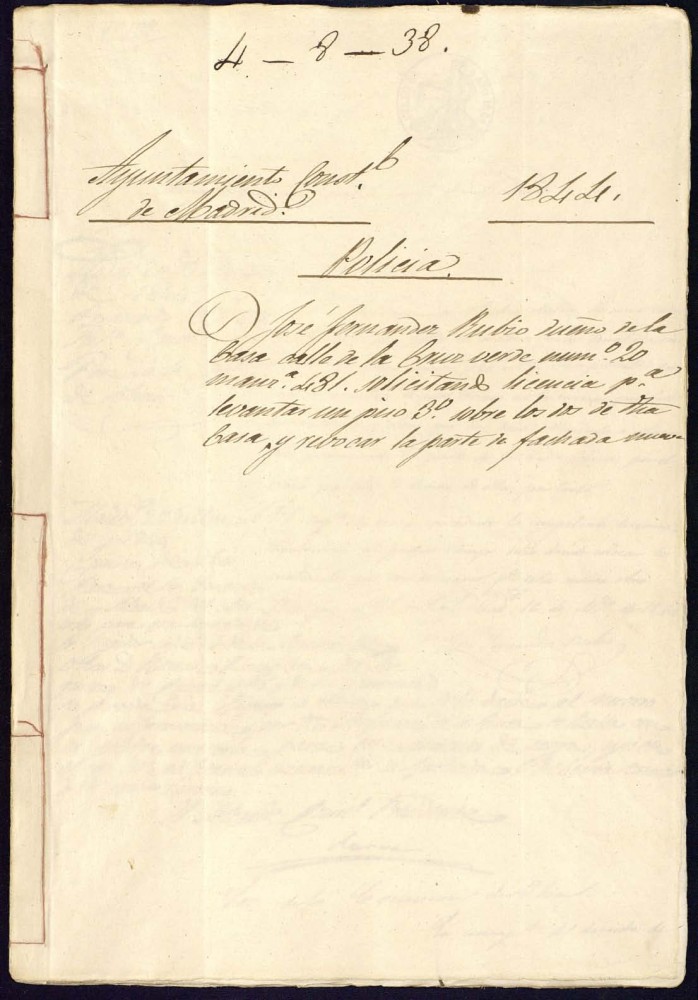 4 - 8 - 38.
Ayuntamiento Const.l
de Madrid.
1844.
Policia.
D José Fernandez Rubio dueño de la
Casa calle de la Cruz verde num.o 20
manz.a 481. solicitando licencia p.a
levantar un piso 3.o sobre los dos de dha
Casa, y revocar la parte de fachada nueva